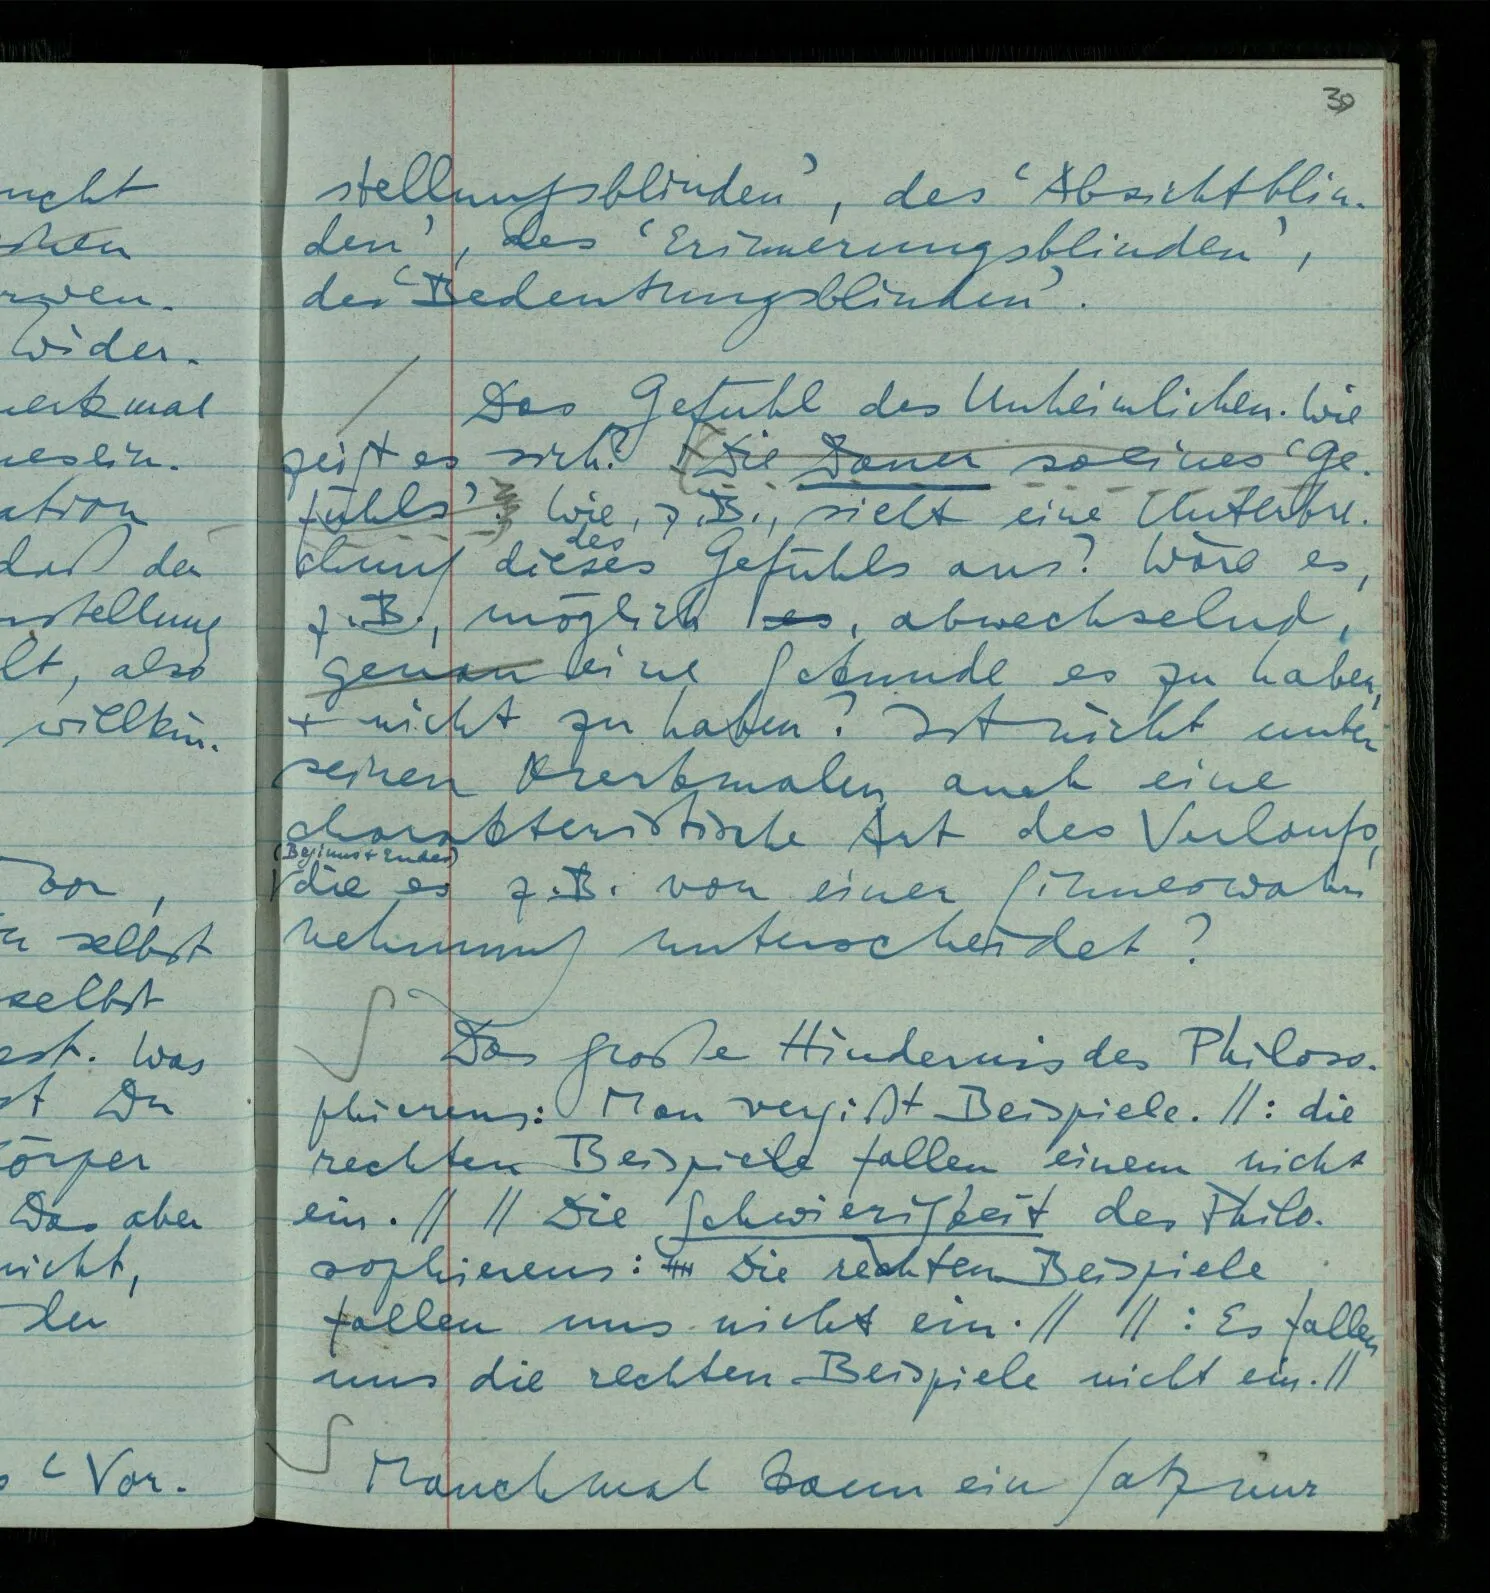 39
nicht
wider.
selbst
selbst
Was
Du
Körper
Das aber
nicht,
der
also
willkür.
‘Vor.
stellungsblinden’, des ‘Absichtblin.
den’, des ‘Erinnerungsblinden’,
des ‘Bedeutungsblinden’.
Das Gefühl des Unheimlichen. Wie
zeigt es sich? Die Dauer so eines ‘Ge.
fühls’. Wie, z.B., sieht eine Unterbre.
des
chung dieses Gefühls aus? Wäre es,
z.B., möglich es, abwechselnd,
genau eine Sekunde es zu haben,
+ nicht zu haben? Ist nicht unter
seinen Merkmalen auch eine
charakteristische Art des Verlaufs,
(Beginns + Endes)
die es z.B. von einer Sinneswahr
nehmung unterscheidet?
Das große Hindernis des Philoso.
phierens: Man vergißt Beispiele. //: die
rechten Beispiele fallen einem nicht
ein. // // Die Schwierigkeit des Philo.
sophierens: Die rechten Beispiele
fallen uns nicht ein. // //: Es fallen
uns die rechten Beispiele nicht ein. //
Manchmal kann ein Satz nur